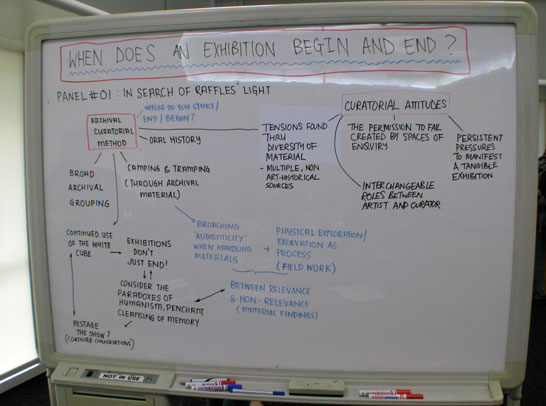 WHEN DOES AN EXHIBITION BEGIN AND END?
PANEL #01: IN SEARCH OF RAFFLES' LIGHT
WHERE DO YOU START/
END/BEGIN?
ARCHIVAL
CURATORIAL
METHOD
ORAL HISTORY
BROAD
ARCHIVAL
GROUPING
CAMPING & TRAMPING
(THROUGH ARCHIVAL
MATERIAL)
TENSIONS FOUND
THRU
DIVERSITY OF
MATERIAL
- MULTIPLE, NON
ART-HISTORICAL
SOURCES
CURATORIAL ATTITUDES
THE PERMISSION TO FAIL
CREATED BY SPACES OF
ENQUIRY
PERSISTENT
PRESSURES
TO MANIFEST
A TANGIBLE
EXHIBITION
INTERCHANGEABLE
ROLES BETWEEN
ARTIST AND CURATOR
CONTINUED USE
OF THE WHITE
CUBE
EXHIBITIONS
DON'T
JUST END!
BROACHING
"AUTHENTICITY"
WHEN HANDLING
MATERIALS
+
PHYSICAL EXPLORATION/
EXCAVATION AS
PROCESS
(FIELD WORK)
CONSIDER THE
PARADOXES OF
HUMANISM, PENCHANT
CLEANSING OF MEMORY
BETWEEN RELEVANCE
& NON-RELEVANCE
(MATERIAL FINDINGS)
RESTAGE
THE SHOW?
(CONTINUED CONVERSATIONS)
NOT IN USE